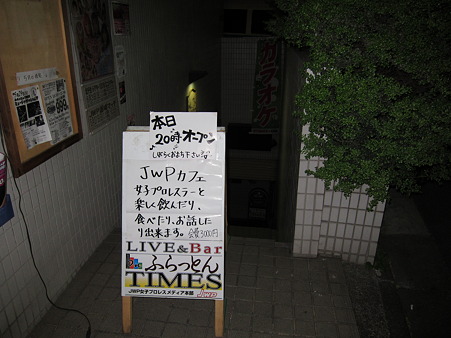 カラオケ
本日
20時オープン
しばらくおまち下さい
JWPカフェ
女子プロレスラーと
楽しく飲んだり、
食べたり、お話した
り出来ます。会費3000円
LIVE&Bar
ふらっとん
TIMES
JWP女子プロレスメディア本部 JWP